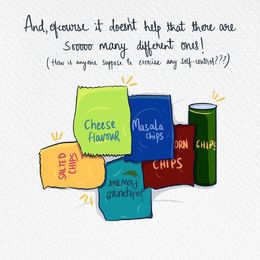 And, ofcourse it doesn't help that there are
soooo many different ones!
(How is anyone suppose to exercise any self-control???)
Cheese
flavour
Masala
chips
SALTED
CHIPS
CORN
CHIPS
CHIPS
Jalapeno
flavour